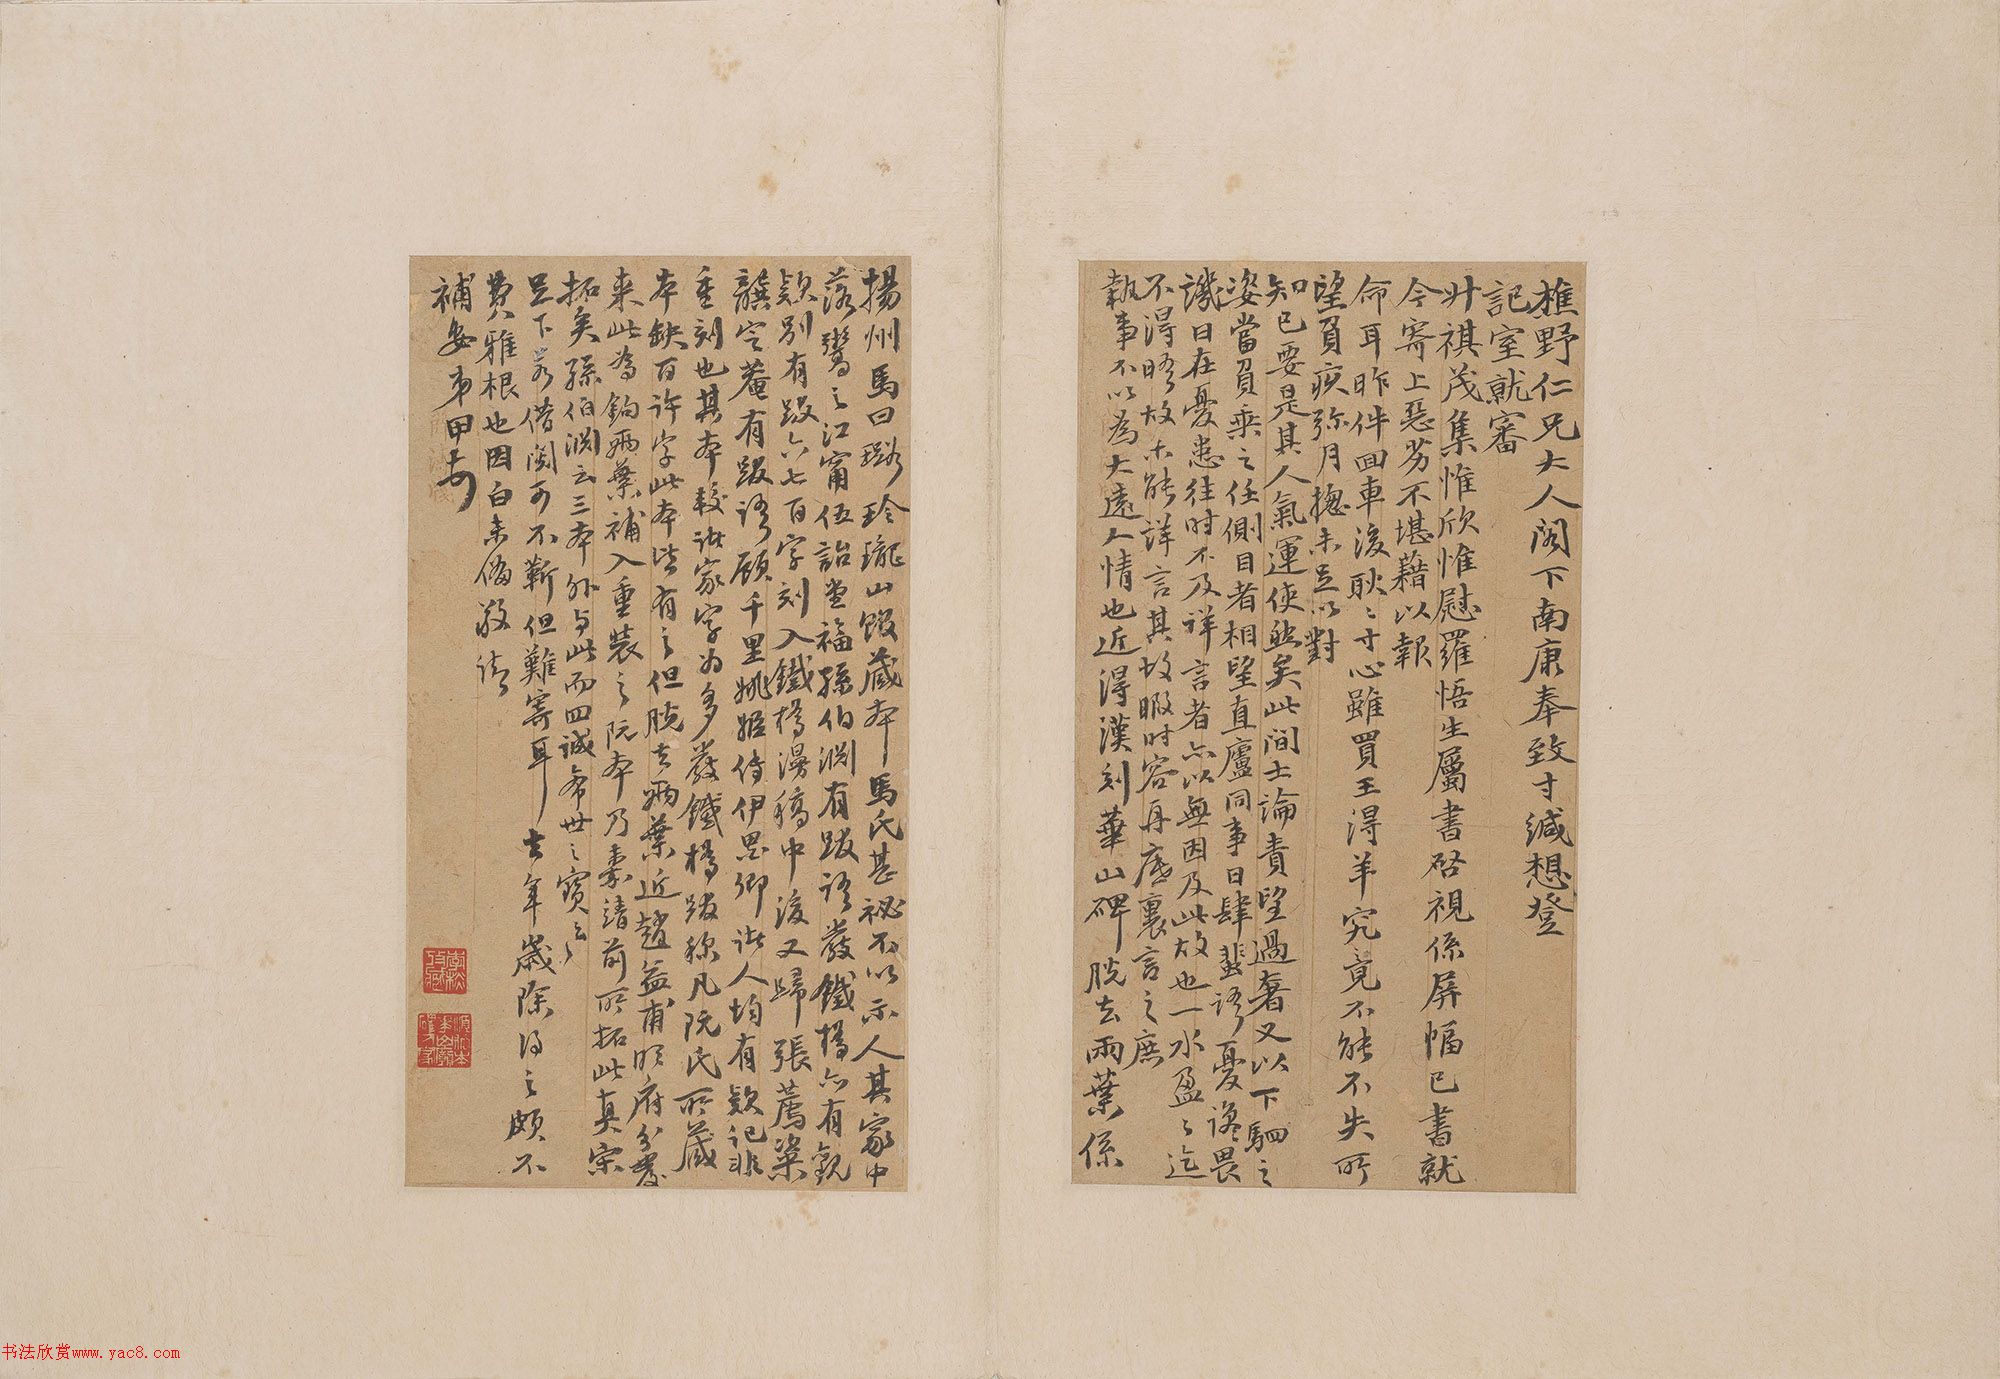 樵野仁兄大人阁下南康奉致寸缄想登
記室就審
升祺茂集惟欣惟慰羅悟生屬書啓視係屏幅已書就
今寄上惡劣不堪藉以報
命耳昨件回車後耿〻寸心雖買王得羊究竟不能不失所
望負疾弥月揔未足以對
知已要是其人氣運使然矣此間士論責望過奢又以下駟之
姿當負乘之任側目者相望直廬同事日肆蜚語憂讒畏
譏日在憂患往时不及详言者亦以無因及此故也一水盈〻迄
不得晤故未能詳言其故暇时容再庶裏言之庶
執事不以為大遠人情也近得漢刻華山碑脫去兩葉係
揚州馬曰璐玲瓏山館藏本馬氏甚祕不以示人其家中
落鬻之江甯伍詒堂福孫伯渊有跋語嚴鐵橋亦有觀
款别有跋六七百字刻入鐵橋漫稿中後又歸張薦粢
龔定菴有跋語顾千里姚姬傳伊墨卿諸人均有款記非
重刻也其本較諸家字为多嚴鐵橋跋称凡阮氏所藏
本缺百许字此本皆有之但脱去兩葉近趙益甫明府为雙
来此為鉤兩葉補入重裝之阮本乃 靖前所拓此真宋
拓矣孫伯渊云三本外与此而四诚希世之寶云〻
足下若借閱可不靳但難寄耳去年歲除得之頗不
費雅根也因白未備敬请
補安弟甲
书法欣赏www.yac8.com